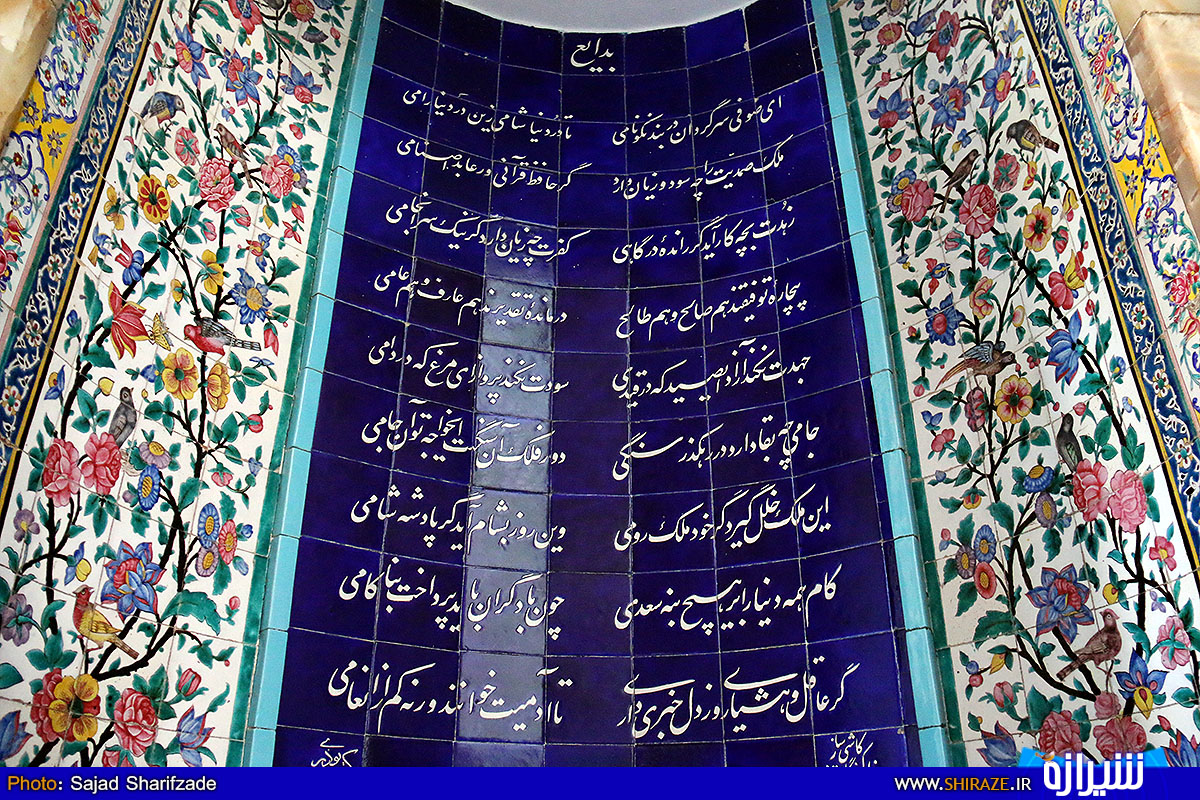 بدایع
ای صوفی سرگردان در بند نکونامی تا درد نیاشامی زین درد نیارامی
ملک صمدیت را چه سود و زیان دارد گر حافظ قرآنی ور عابد اصنامی
زهدت بچه کار آید گر رانده درگاهی کفرت چه زیان دارد گر نیک سرانجامی
بیچاره توفیقند هم صالح و هم طالح درمانده تقدیرند هم عارف و هم عامی
جهدت نکند آزاد ای صید که در قیدی سودت نکند پرواز ای مرغ که در دامی
جامی چه بقا دارد در رهگذر سنگی دور فلک آن سنگست ایخواجه تو آن جامی
این ملک خلل گیرد گر خود ملک رومی وین روز بشام آید گر پادشه شامی
کام همه دنیا را بر هیچ بنه سعدی چون با دگران باید پرداخت بناکامی
گر عاقل و هشیاری وز دل خبری داری تا آدمیت خوانند ورنه کم از انعامی
کاشی ساز
Photo: Sajad Sharifzade
WWW.SHIRAZE.IR
شیرازه